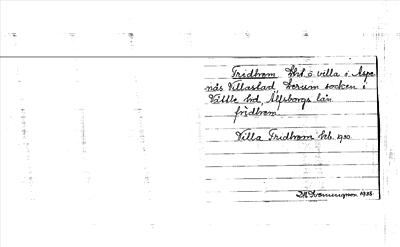 Fridhem, lht. o. villa i Aspe
näs Villastad, Lerum socken i
Vättle hd, Älfsborgs län.
fridhem
Villa Fridhem beb. 1930.
1933.